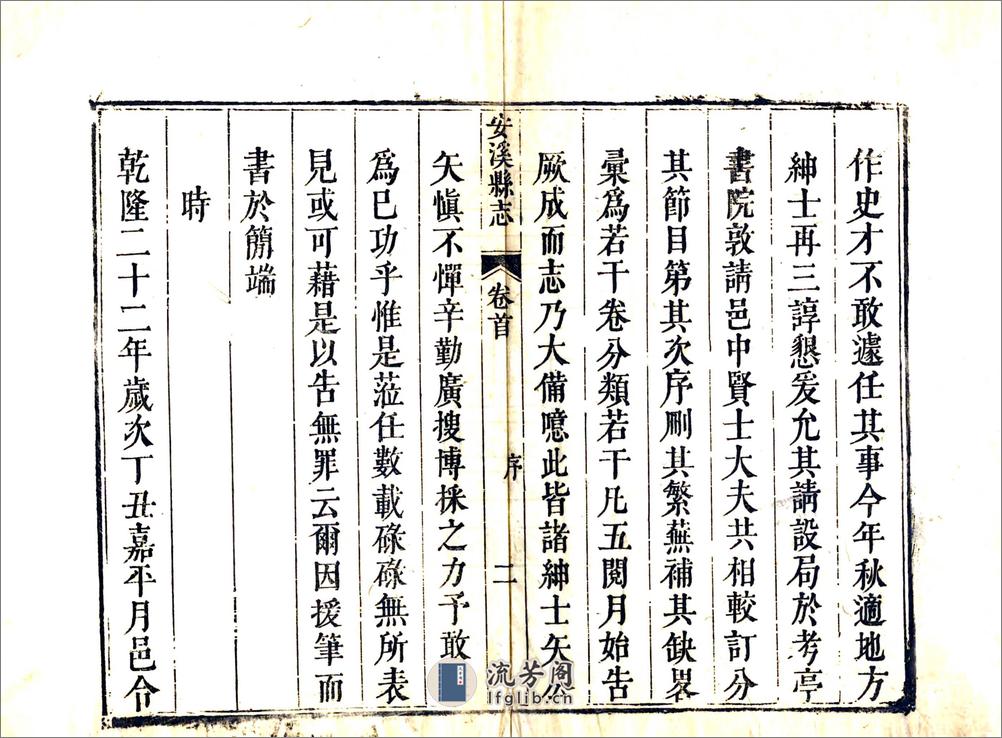 作史才不敢遽任其事今年秋適地方
紳士再三諄懇爰允其請設局於考亭
書院敦請邑中賢士大夫共相較訂分
其節目第其次序刪其繁蕪補其缺畧
彙爲若干卷分類若干凡五閱月始告
厥成而志乃大備噫此皆諸紳士矢公
安溪縣志 卷首 序 二
矢愼不憚辛勤廣搜博採之力予敢
爲已功乎惟是蒞任數載碌碌無所表
見或可藉是以告無罪云爾因援筆而
書於簡端
時
乾隆二十二年歲次丁丑嘉平月邑令
流芳阁
lfglib.cn